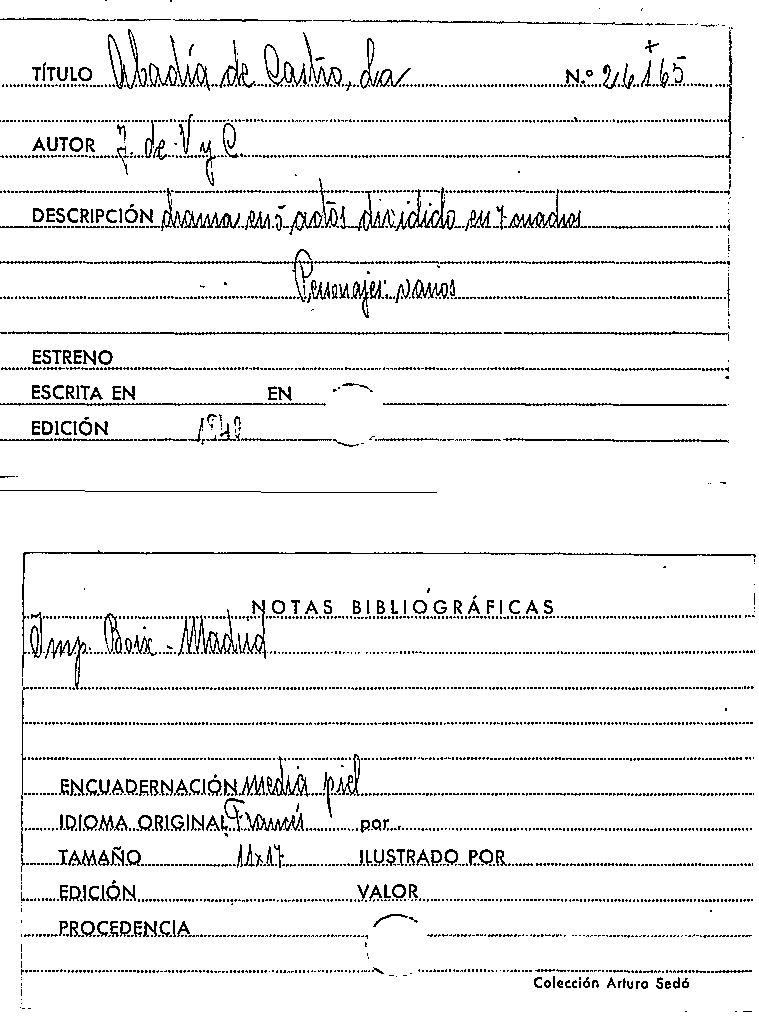 TÍTULO Abadía de Castro, La N.º 26165
+
AUTOR J. de V y C.
DESCRIPCIÓN drama en 5 actos dividido en 7 cuadros
Personajes: varios
ESTRENO
ESCRITA EN EN
EDICIÓN 1840
NOTAS BIBLIOGRÁFICAS
Imp. Boix - Madrid
ENCUADERNACIÓN media piel
IDIOMA ORIGINAL Francés por
TAMAÑO 11x17 ILUSTRADO POR
EDICIÓN VALOR
PROCEDENCIA
Colección Arturo Sedó